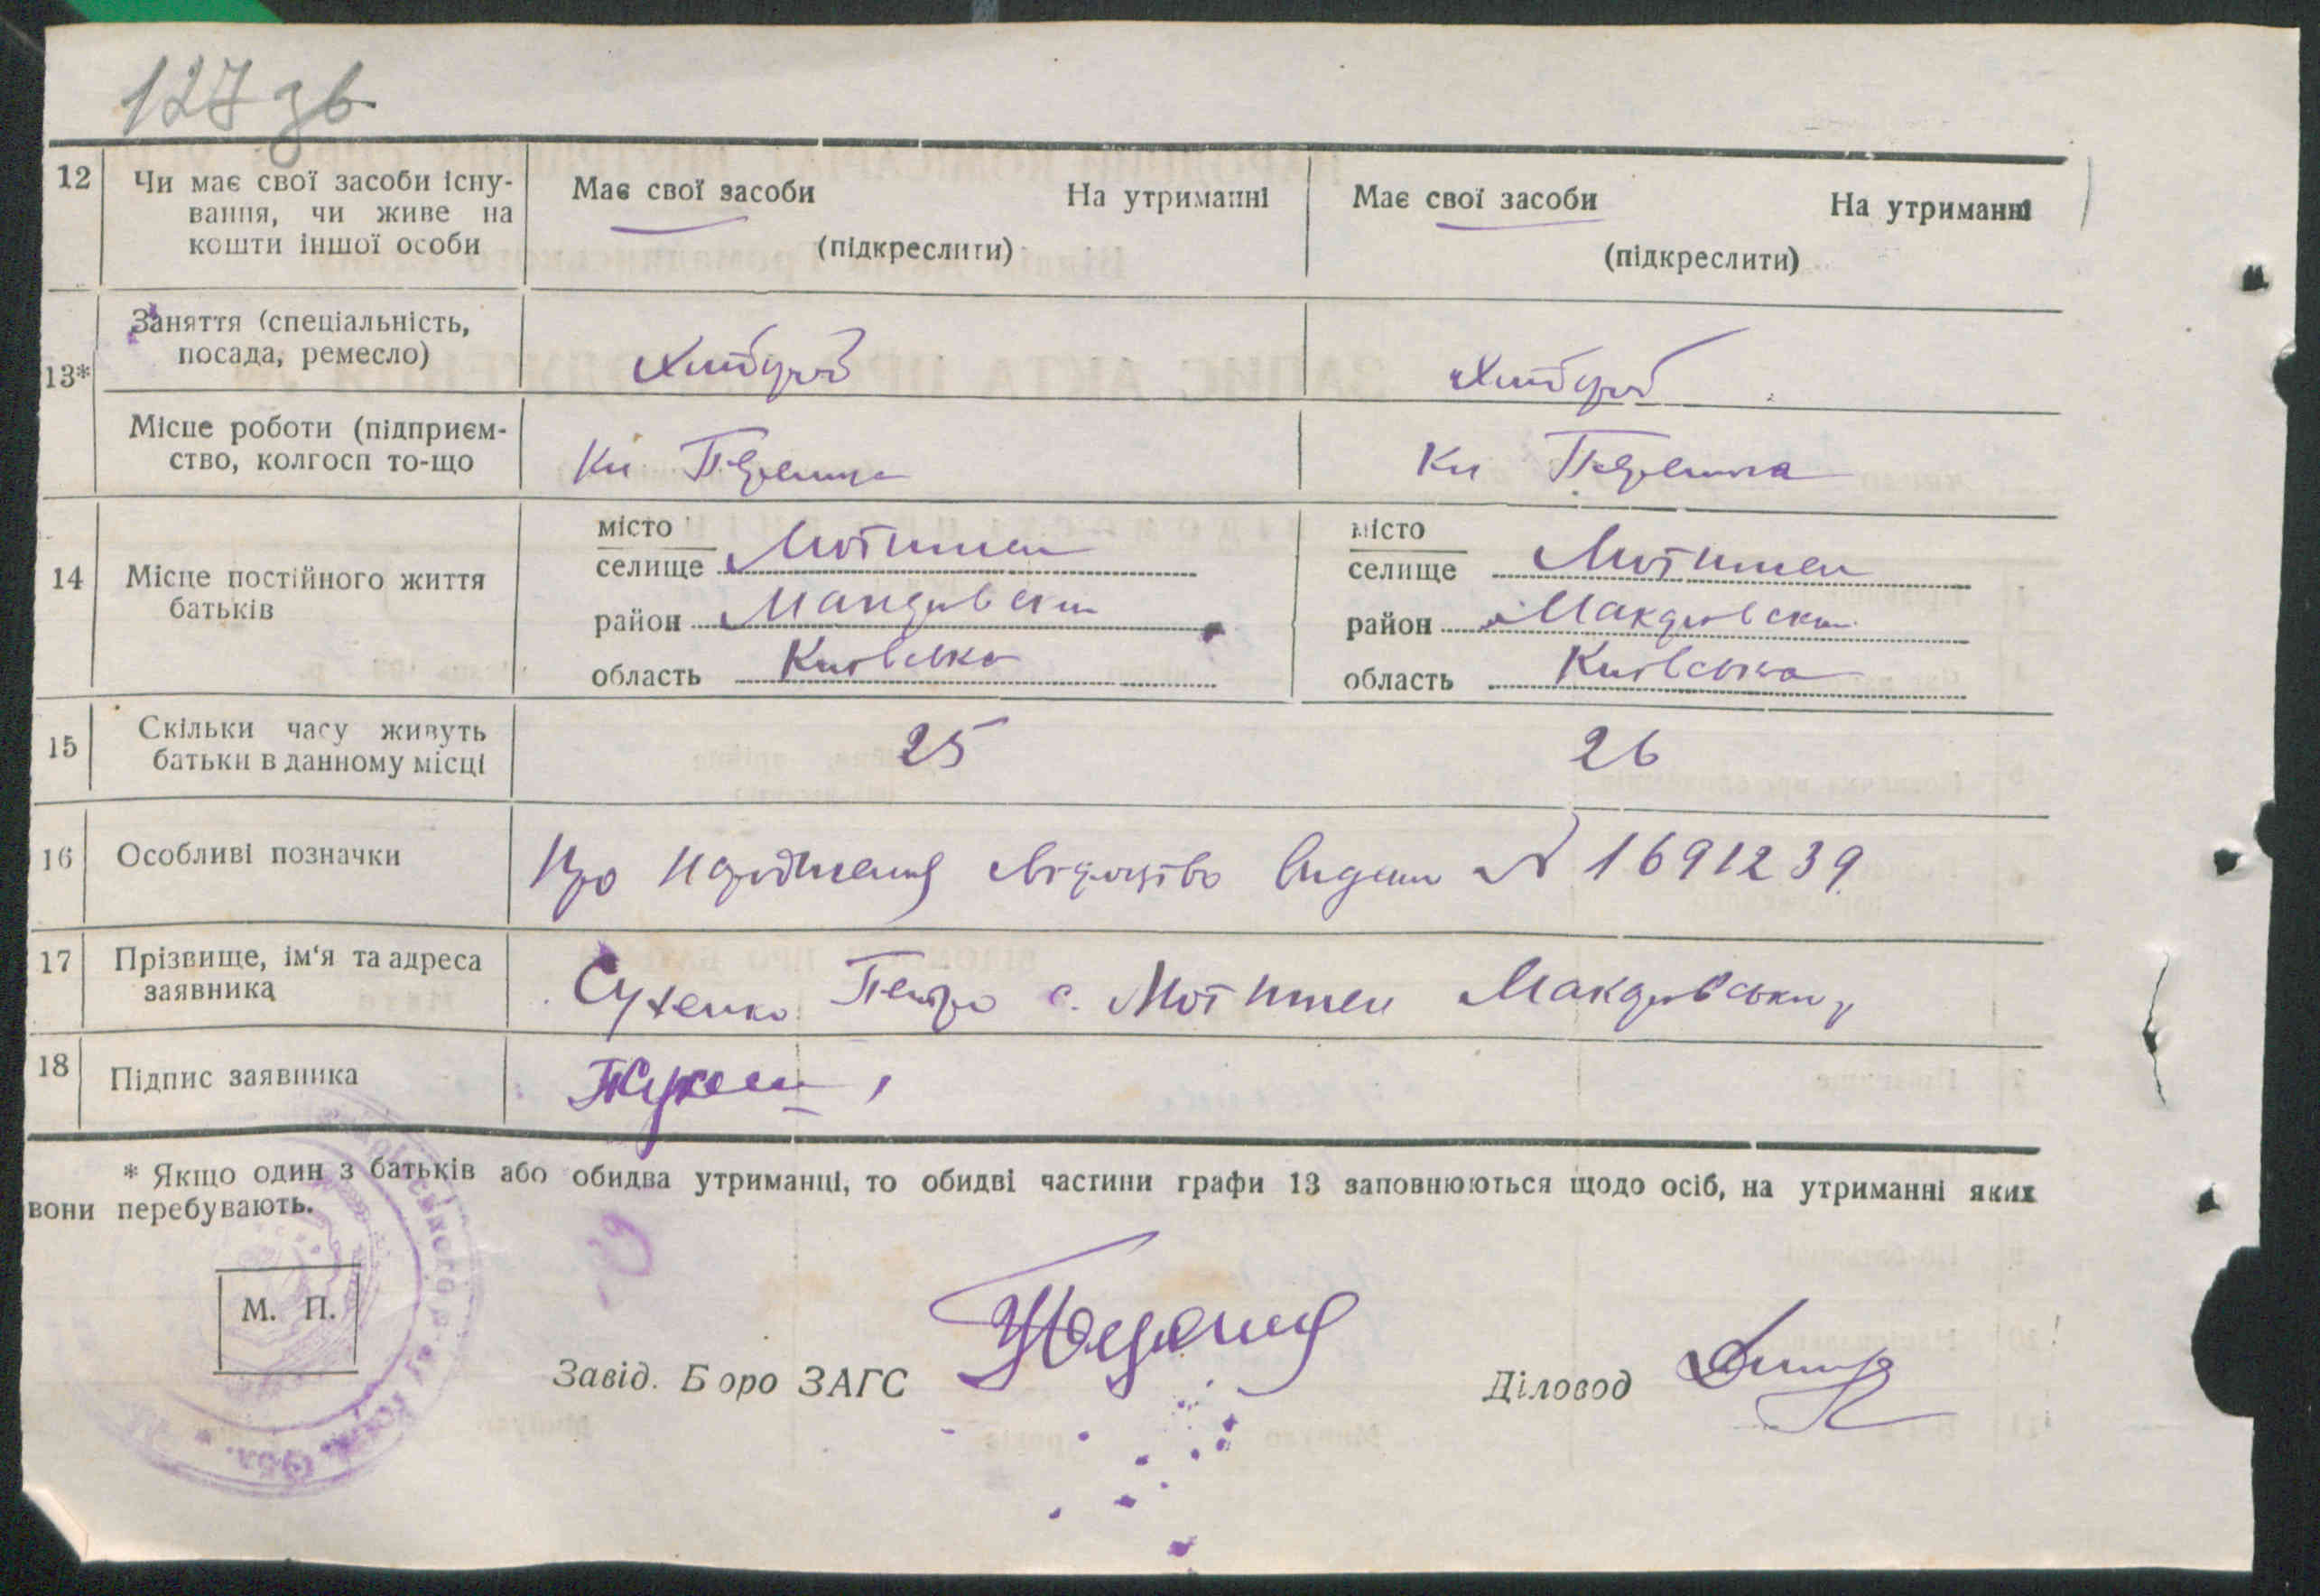 127 зв
12 Чи має свої засоби існу-
вання, чи живе на
кошти іншої особи
Має свої засоби На утриманні
(підкреслити)
Має свої засоби На утриманні
(підкреслити)
13* Заняття (спеціальність,
посада, ремесло)
Хлібороб
Хлібороб
Місце роботи (підприєм-
ство, колгосп то-що
Кп
Кп
14 Місце постійного життя
батьків
місто
селище Мотижен
район Макаровский
область Київська
місто
селище Мотижен
район Макаровский
область Київська
15 Скільки часу живуть
батьки в данному місці
25
26
16 Особливі позначки
Про народження свідоцтво видано № 1691239
17 Прізвище, ім'я та адреса
заявника
Сухенко Петро с. Мотижен Макаровський
18 Підпис заявника
* Якщо один з батьків або обидва утриманці, то обидві частини графи 13 заповнюються щодо осіб, на утриманні яких
вони перебувають.
М. П.
Завід. Б оро ЗАГС
Діловод